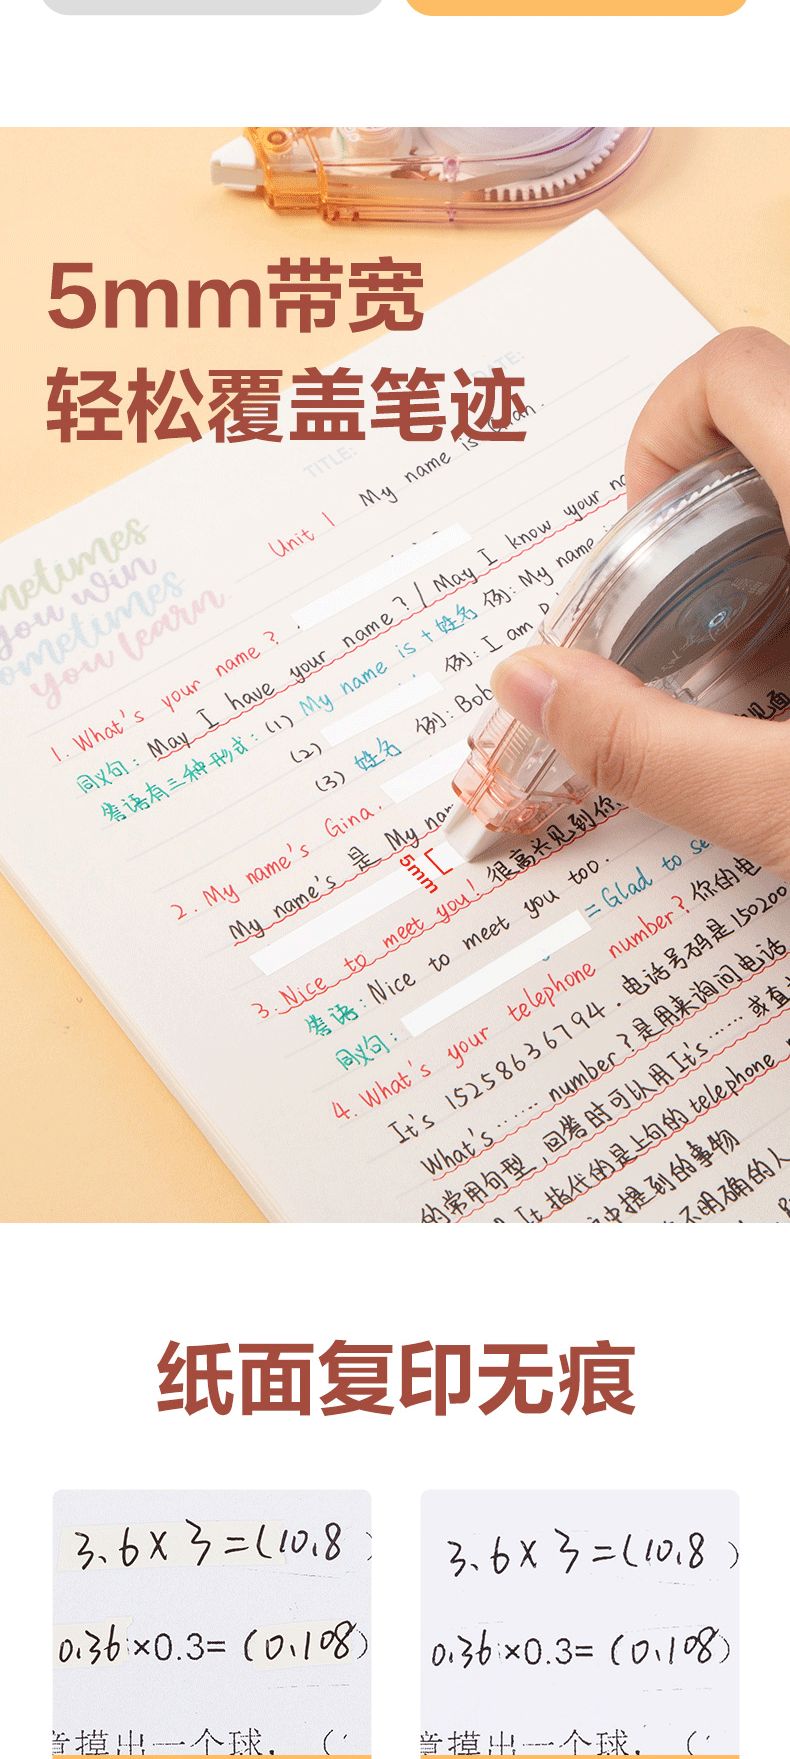 5mm带宽
轻松覆盖笔迹
DATE:
TITLE:
My name is
Unit 1
sometimes
you win
sometimes
you learn
1. What's your name?
May I have your name? / May I know your
同义句:
答语有三种形式: (1) My name is + 姓名 例: My name
(2) 例: I am
(3) 姓名 例: Bob
2. My name's Gina.
My name's 是 My
5mm
3. Nice to meet you! 很高兴见到你
答语: Nice to meet you too.
同义句: = Glad to
4. What's your telephone number? 你的电
It's 15258636794. 电话号码是150200
What's…… number? 是用来询问电话
的常用句型, 回答时可以用It's……或直
It 指代的是上句的telephone
中提到的事物
不明确的人
纸面复印无痕
3.6×3=(10.8
0.36×0.3=(0.108)
章摸出一个球, (
3.6×3=(10.8)
0.36×0.3=(0.108)
章摸出一个球, (